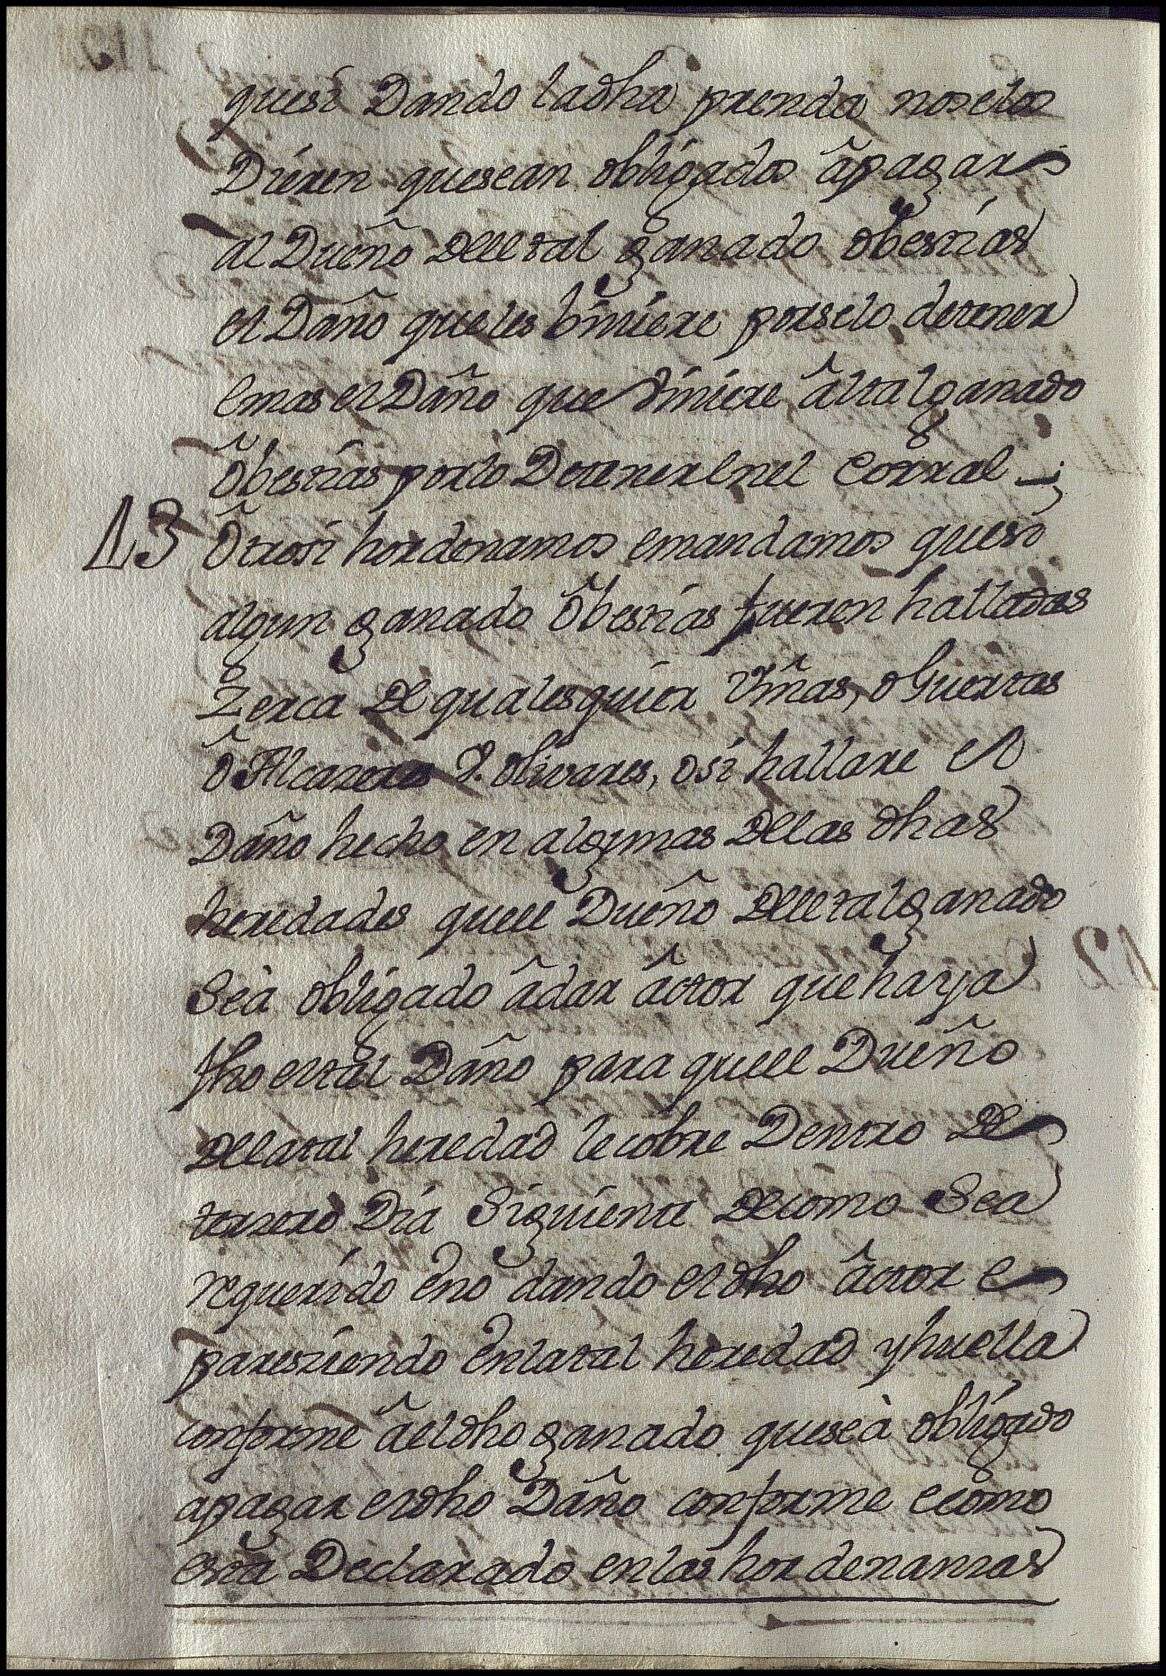 quesi Dando ladha prenda noselos
Dieren quesean obligados âpagar
al Dueño delletal ganado obestias
el Daño queles biniere porselo detener
emas el Daño que viniere âltal ganado
ôbestias porlo Detener enel corral
13 Otrosi hordenamos emandamos quesi
algun ganado ôbestias fueren halladas
Zerca de qualesquier viñas, oGuertas
ô Alcazeres O olivares, osi hallare el
Daño hecho en algunas delas dhas
heredades quell Dueño delletalganado
Sea obligado âdar âctor quehaya
fho eltal Daño para quell Dueño
delatal heredad lecobre Dentro de
terzero Dia Siguiente decomo Sea
requerido eno dando eldho âctor e
paresziendo enlatal heredad yhuella
conforme âeldho ganado quesea obligado
apagar eldho Daño conforme ecomo
esta Declarado enlas hordenanzas